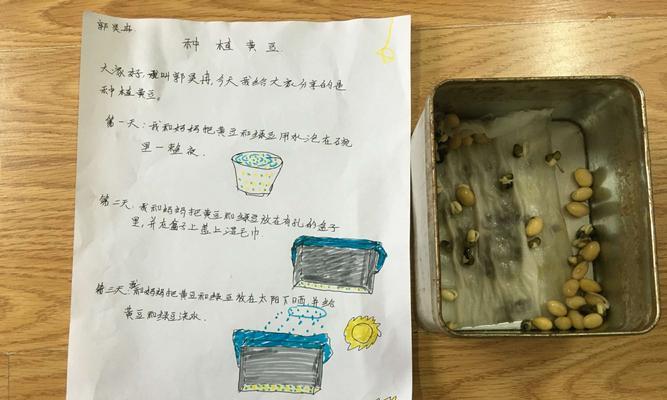 郭昊冉
种植黄豆
大家好,我叫郭昊冉,今天我给大家分享的是
种植黄豆。
第一天:我和妈妈把黄豆和绿豆用水泡在了碗
里一整夜.
第二天:我和妈妈把黄豆和绿豆放在有孔的盒子
里,并在盒子上盖上湿毛巾
第三天:我和妈妈把黄豆和绿豆放在太阳下晒,并给
黄豆和绿豆浇水.